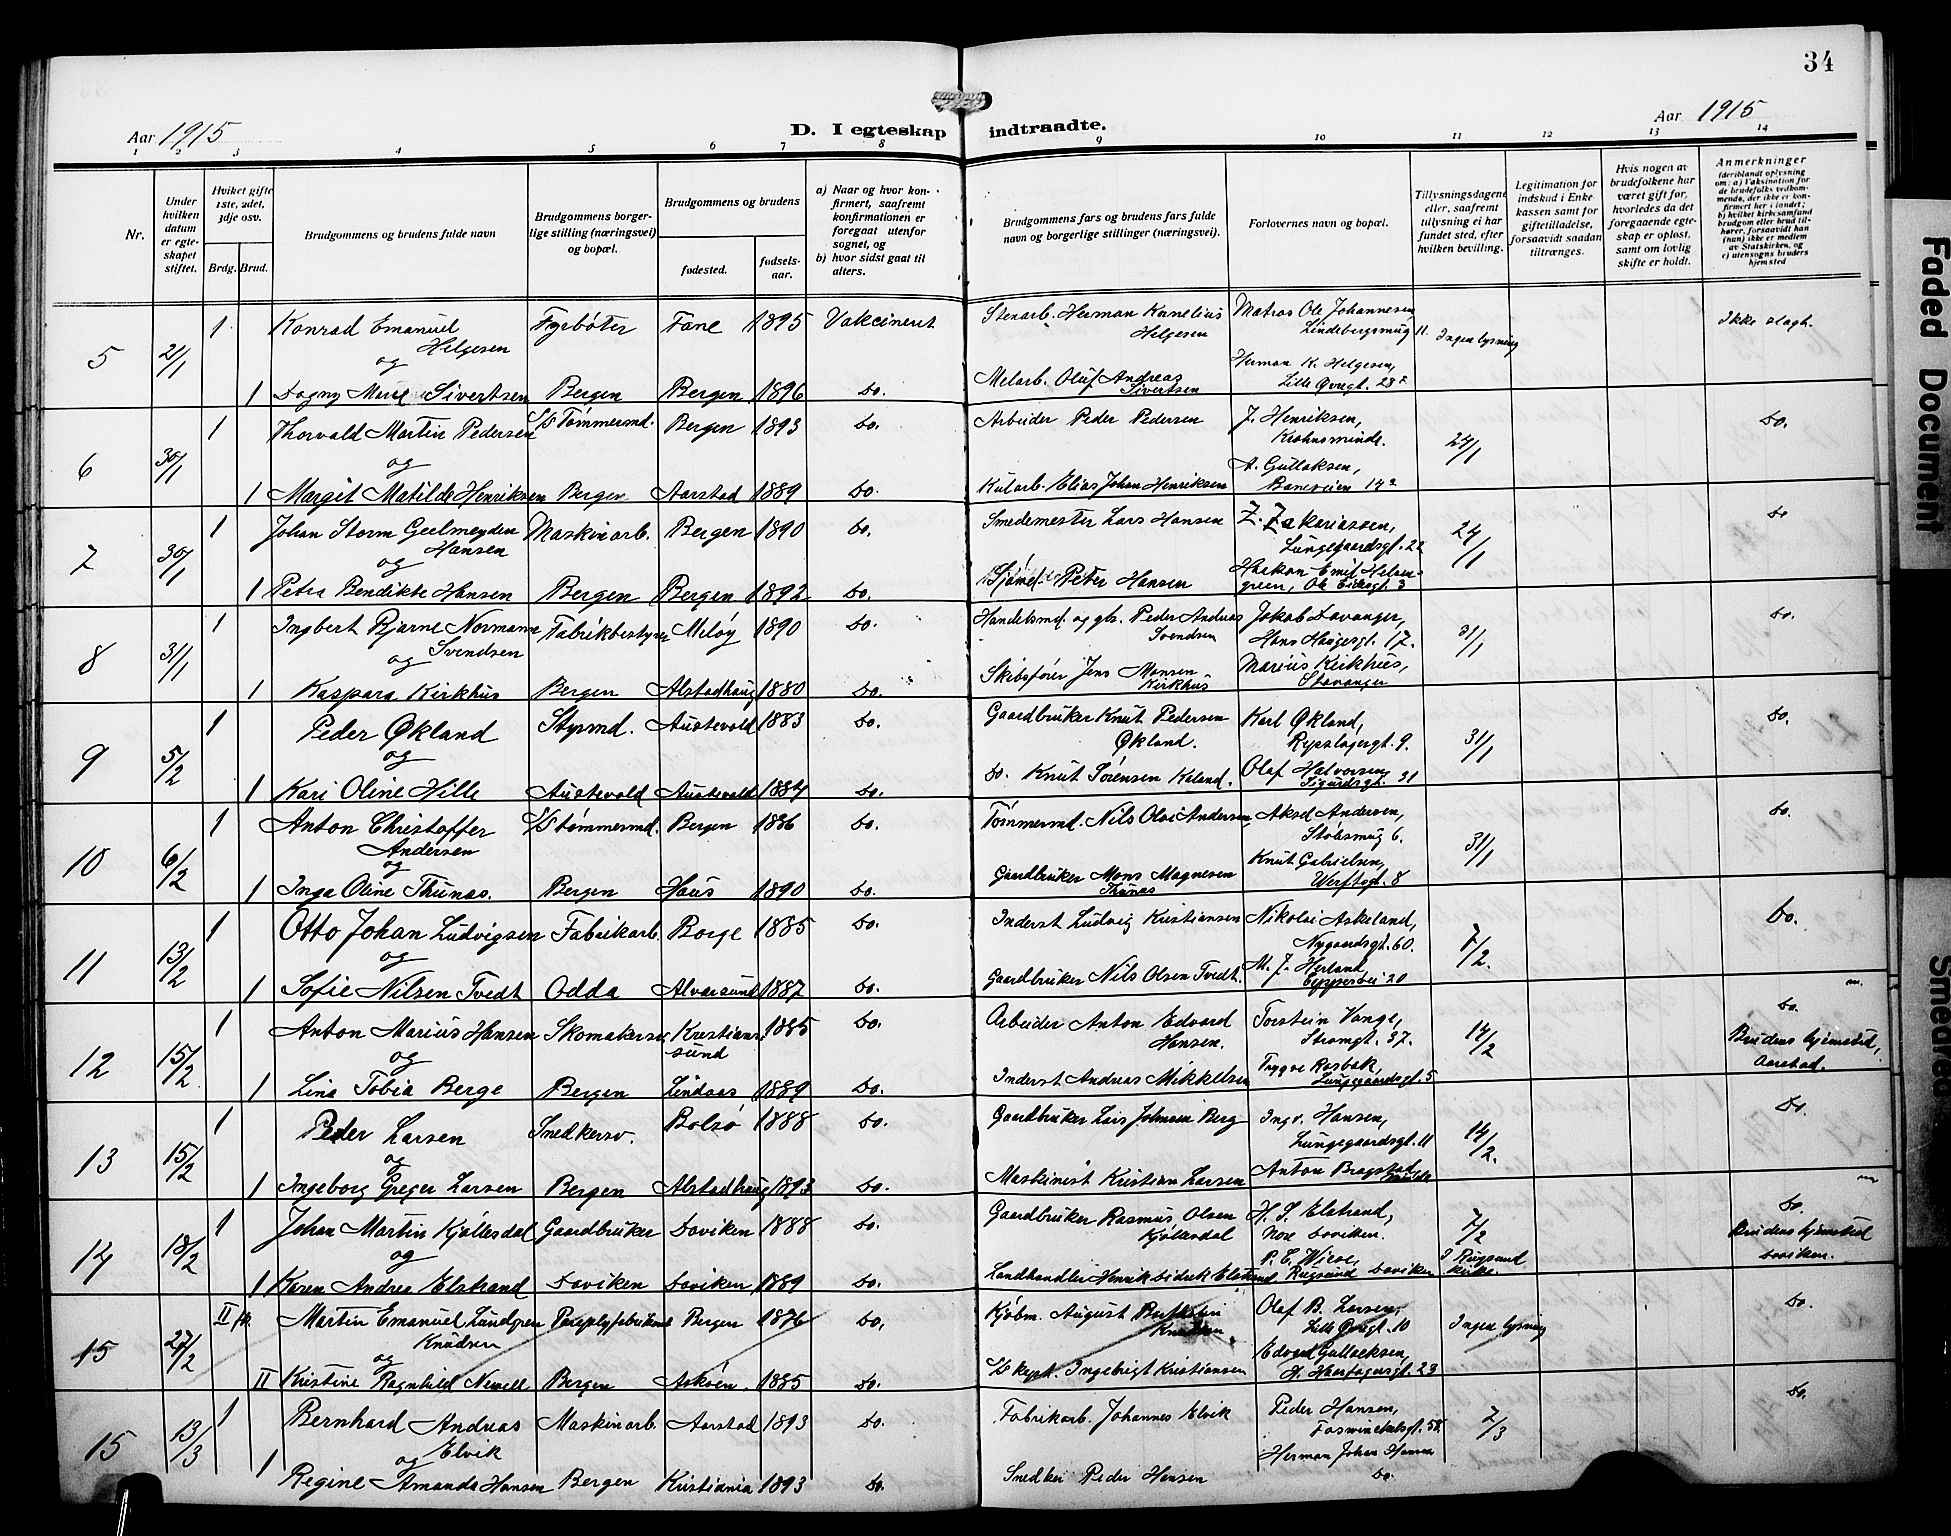 34
Aar 1915
D. I egteskap indtraadte.
Aar 1915
1 2 3 4 5 6 7 8 9 10 11 12 13 14
Nr.
Under hvilken datum er egte-skapet stiftet.
Hvilket gifte 1ste, 2det, 3dje osv.
Brdg. Brud.
Brudgommens og brudens fulde navn
Brudgommens borger-lige stilling (næringsvei) og bopæl.
Brudgommens og brudens
fødested.
fødsels-aar.
a) Naar og hvor kon-firmert, saafremt konfirmationen er foregaat utenfor sognet, og
b) hvor sidst gaat til alters.
Brudgommens fars og brudens fars fulde navn og borgerlige stillinger (næringsvei).
Forlovernes navn og bopæl.
Tillysningsdagene eller, saafremt tillysning ei har fundet sted, efter hvilken bevilling.
Legitimation for indskud i Enke-kassen samt for giftetilladelse, forsaavidt saadan tiltrænges.
Hvis nogen av brudefolkene har været gift før, hvorledes da det foregaaende egte-skap er opløst, samt om lovlig skifte er holdt.
Anmerkninger (deriblandt oplysning om: a) Vaksination for de brudefolks vedkom-mende, der ikke er kon-firmert her i landet; b) hvilket kirkesamfund brudgom eller brud til-hører, forsaavidt han (hun) ikke er medlem av Statskirken, og c) utensogns bruders hjemsted
5 21/1 1 Konrad Emanuel Helgesen Fyrbøter Fane 1895 Vakcineret Stenarb. Herman Kornelius Helgesen Matros Ole Johannesen, Lindebergsmug 11. Ingen lysning Ikke slagt.
og
1 Dagny Marie Sivertsen Bergen Bergen 1896 Do. Melarb. Oluf Andreas Sivertsen Herman K. Helgesen, Lille Øvregt. 23
6 30/1 1 Thorvald Martin Pedersen S/S Tømmermd. Bergen 1893 Do. Arbeider Peder Pedersen J. Henriksen, Krohnsminde. 24/1 Do.
og
1 Margit Matilde Henriksen Bergen Aarstad 1889 Do. Kularb. Elias Johan Henriksen A. Gullaksen, Baneveien 14
7 30/1 1 Johan Storm Geelmeyden Hansen Maskinarb. Bergen 1890 Do. Smedemester Lars Hansen Z. Zakariassen, Lungegaardsgt. 22 24/1 Do
og
1 Petra Bendikte Hansen Bergen Bergen 1892 Do. Peter Hansen Haakon Emil green, Ole 3
8 31/1 1 Ingbert Bjarne Normann Svendsen Fabrikbestyrer Meløy 1890 Do. Handelsmd. og gbr. Peder Andreas Svendsen Jakob Davanger, Hans Haugesgt. 17. 31/1 Do.
og
1 Kaspara Kirkhus Bergen Alstadhaug 1880 Do. Skibsfører Jens Monsen Kirkhus Marius Kirkhus, Stavanger
9 5/2 1 Peder Økland Styrmd. Austevold 1883 Do. Gaardbruker Knut Pedersen Økland. Karl Økland, Repslagergt. 9. 31/1 Do.
og
1 Kari Oline Hille Austevold Austevold 1884 Do. Do. Knut Sørensen Kaland. Olaf Halvorsen Sigurdsgt. 31
10 6/2 1 Anton Christoffer Andersen S/S tømmermd. Bergen 1886 Do. Tømmermd. Nils Olai Andersen Aksel Andersen, Stølsmug 6. 31/1 Do.
og
1 Inga Oline Thunæs. Bergen Haus 1890 Do. Gaardbruker Mons Magnesen Thunæs Knut Gabrielsen, Werftsgt. 8
11 13/2 1 Otto Johan Ludvigsen Fabrikarb. Borge 1885 Do. Inderst Ludvig Kristiansen Nikolai Askeland, Nygaardsgt. 60. 7/2. Do.
og
1 Sofie Nilsen Tvedt Odda Alversund 1887 Do. Gaardbruker Nils Olsen Tvedt. M. J. Herland 20
12 15/2. 1 Anton Marius Hansen Skomakersv. Kristiansund 1885 Do. Arbeider Anton Edvard Hansen. Torstein Vange, Strømgt. 37. 14/2 Do. Brudens hjemsted, Aarstad.
og
1 Lina Tobia Berge Bergen Lindaas 1889 Do. Inderst Andreas Mikkelsen Trygve Rosbak, Lungegaardsgt. 5
13 15/2 1 Peder Larsen Snedkersv. Bolsø 1888 Do. Gaardbruker Lars Johnsen Berg Ingv. Hansen, Lungegaardsgt. 11 14/2. Do.
og
1 Ingeborg Greger Larsen Bergen Alstadhaug 1893 Do. Maskinist Kristian Larsen Anton Bragstad,
14 18/2 1 Johan Martin Kjøllesdal Gaardbruker Daviken 1888 Do. Gaardbruker Rasmus Olsen Kjøllesdal H. S. Elstrand, Nore Daviken. 7/2 Do. Brudens hjemsted Daviken.
og
1 Karen Andrea Elstrand Daviken Daviken 1889 Do. Landhandler Henrik Didrik Elstrand P. E. Wiese, Rugsund Daviken I Rugsund kirke.
15 27/2 II fk. Martin Emanuel Lundgren Knudsen Bergen 1876 Do. Kjøbm. August Knudsen Olaf B. Larsen, Lille Øvregt. 10 Ingen lysning Do.
og
II Kristine Ragnhild Newell Bergen Askøen. 1885 Do. S/S kapt. Ingebrigt Kristiansen Edvard Gullaksen, H. Haarfagersgt. 23
15 13/3 1 Bernhard Andreas Elvik Maskinarb. Aarstad 1893 Do. Fabrikarb. Johannes Elvik Peder Hansen, 7/3 Do.
og
1 Regine Amanda Hansen Bergen Kristiania 1893 Do. Snedker Peder Hansen Herman Johan Hansen Do.
Faded Document
Smeared